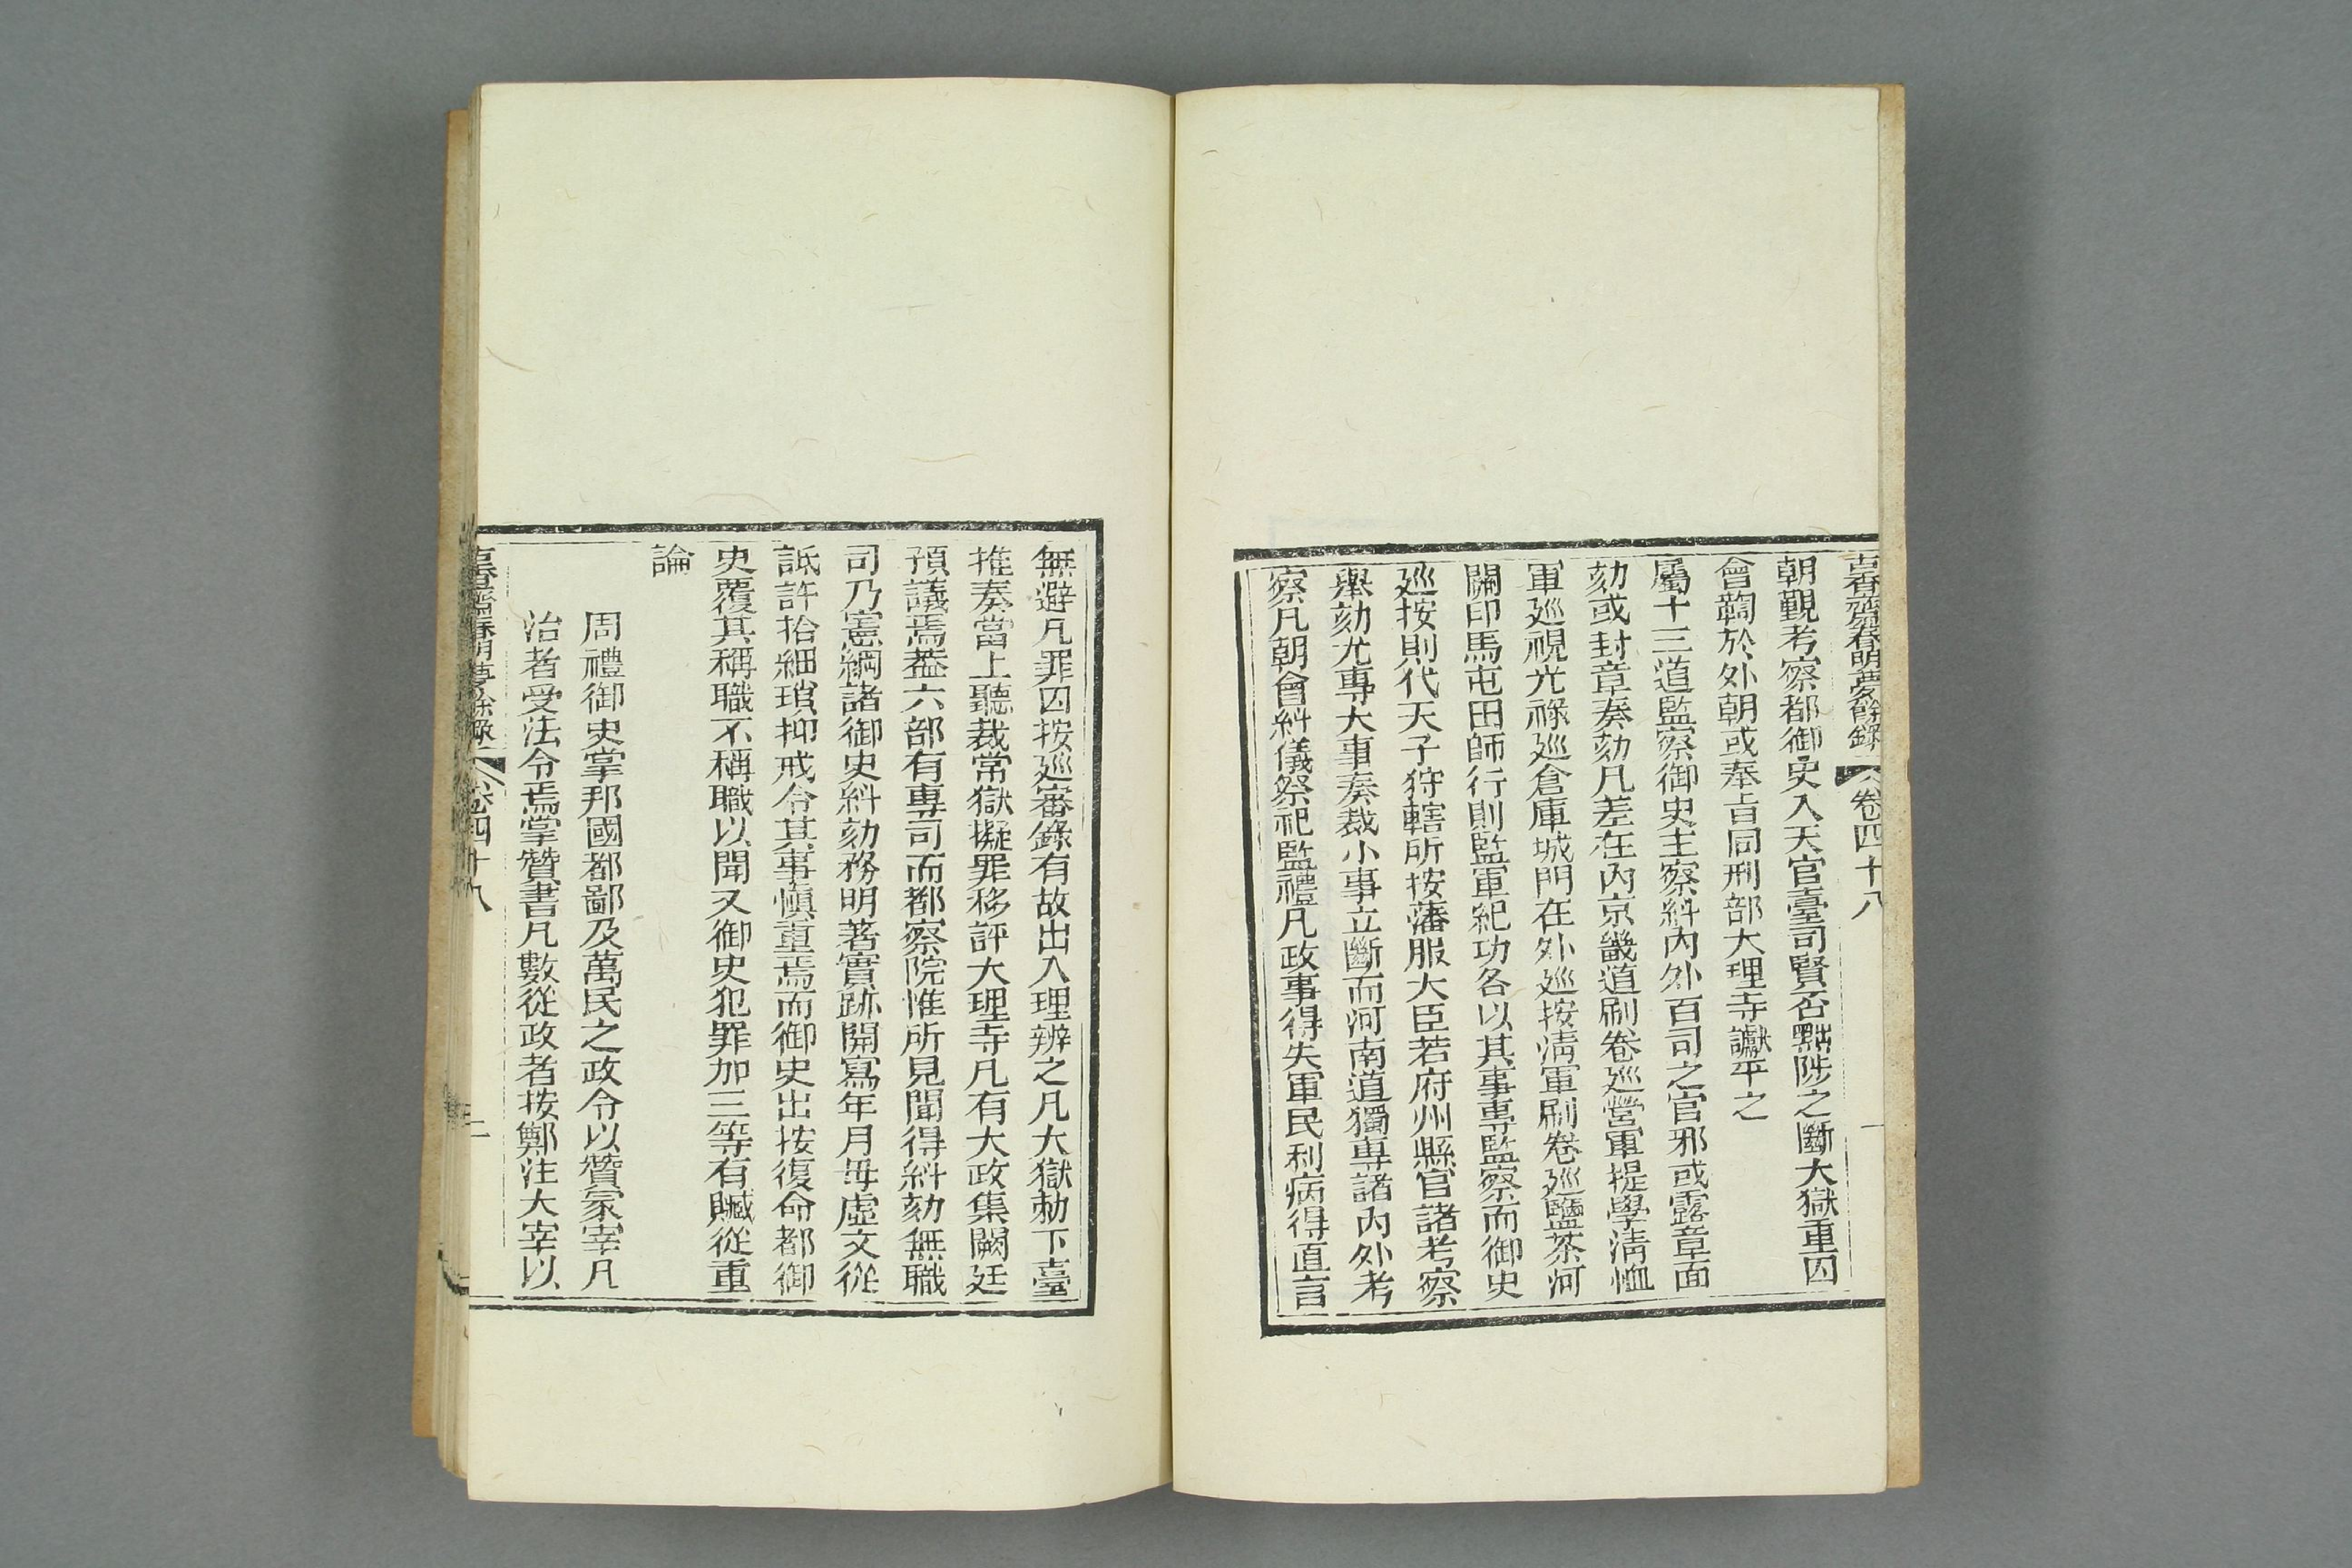 古香齋春明夢餘錄 卷四十八 一
朝覲考察都御史入天官臺司賢否黜陟之斷大獄重囚
會鞫於外朝或奉旨同刑部大理寺讞平之
屬十三道監察御史主察糾內外百司之官邪或露章面
劾或封章奏劾凡差在內京畿道刷卷廵營軍提學淸恤
軍廵視光祿廵倉庫城門在外廵按淸軍刷卷廵鹽茶河
關印馬屯田師行則監軍紀功各以其事專監察而御史
廵按則代天子狩轄所按藩服大臣若府州縣官諸考察
舉劾尤專大事奏裁小事立斷而河南道獨專諸內外考
察凡朝會糾儀祭祀監禮凡政事得失軍民利病得直言
無避凡罪囚按廵審錄有故出入理辨之凡大獄勅下臺
推奏當上聽裁常獄擬罪移評大理寺凡有大政集闕廷
預議焉葢六部有專司而都察院惟所見聞得糾劾無職
司乃憲綱諸御史糾劾務明著實跡開寫年月毋虛文從
詆訐拾細瑣抑戒令其事愼重焉而御史出按復命都御
史覆其稱職不稱職以聞又御史犯罪加三等有贓從重
論
周禮御史掌邦國都鄙及萬民之政令以贊冢宰凡
治者受法令焉掌贊書凡數從政者按鄭注大宰以
古香齋春明夢餘錄 卷四十八 二